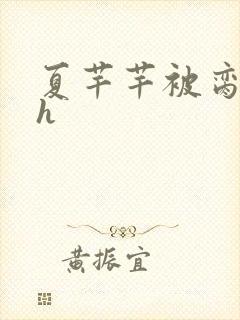 夏芊芊被脔
h
黄振宜